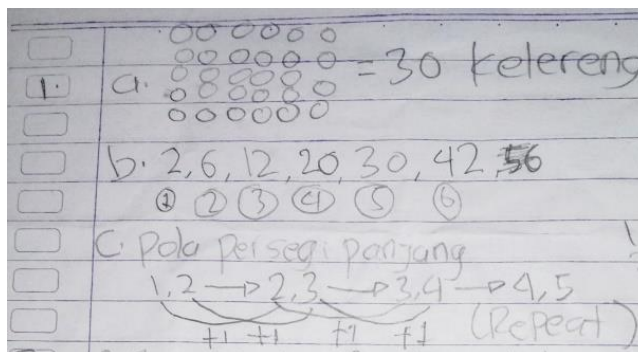 1. a. = 30 kelereng
b. 2, 6, 12, 20, 30, 42, 56
① ② ③ ④ ⑤ ⑥
C. pola persegi panjang
1,2 → 2,3 → 3,4 → 4,5
+1 +1 +1 +1 (Repeat)